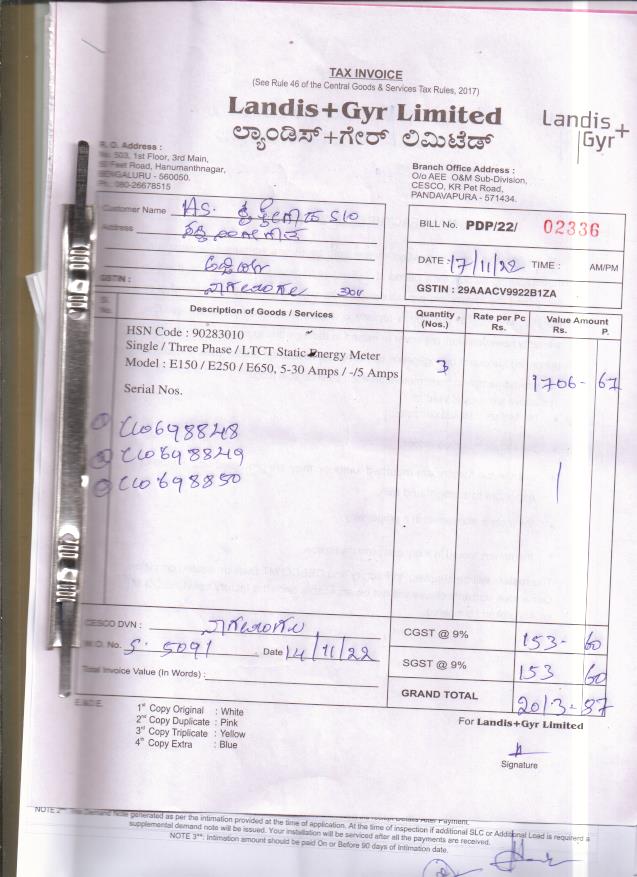 TAX INVOICE
(See Rule 46 of the Central Goods & Services Tax Rules, 2017)
Landis+Gyr Limited
ಲ್ಯಾಂಡಿಸ್+ಗೇರ್ ಲಿಮಿಟೆಡ್
Landis+
Gyr
R. O. Address :
No. 503, 1st Floor, 3rd Main,
Feet Road, Hanumanthnagar,
BENGALURU - 560050.
Ph.: 080-26678515
Branch Office Address :
O/o AEE O&M Sub-Division,
CESCO, KR Pet Road,
PANDAVAPURA - 571434.
Customer Name
Address
GSTIN :
BILL No. PDP/22/ 02336
DATE : 17/11/22 TIME : AM/PM
GSTIN : 29AAACV9922B1ZA
Sl. No. Description of Goods / Services Quantity (Nos.) Rate per Pc Rs. Value Amount Rs. P.
HSN Code : 90283010
Single / Three Phase / LTCT Static Energy Meter
Model : E150 / E250 / E650, 5-30 Amps / -/5 Amps 3 1706-67
Serial Nos.
1 CL0698848
2 CL0698849
3 CL0698850
CESCO DVN :
W.O. No. S- 5091 Date 14/11/22
Total Invoice Value (In Words) :
CGST @ 9% 153-60
SGST @ 9% 153 60
GRAND TOTAL 2013-87
E.&O.E.
1st Copy Original : White
2nd Copy Duplicate : Pink
3rd Copy Triplicate : Yellow
4th Copy Extra : Blue
For Landis+Gyr Limited
Signature
NOTE 2**: The Demand Note generated as per the intimation provided at the time of application. At the time of inspection if additional SLC or Additional Load is required a
supplemental demand note will be issued. Your installation will be serviced after all the payments are received.
NOTE 3**: Intimation amount should be paid On or Before 90 days of Intimation date.